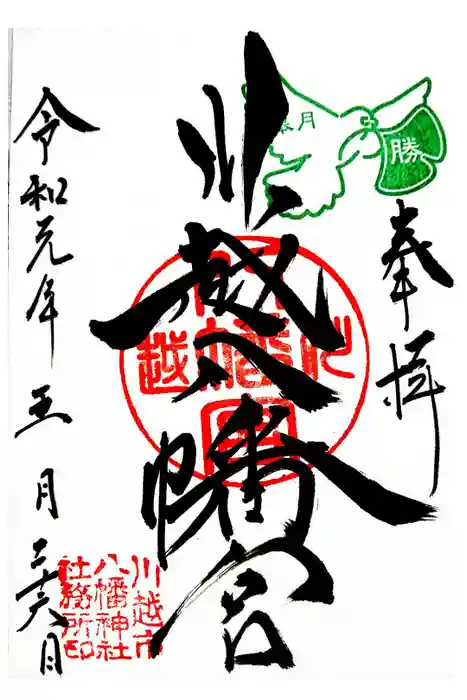 奉拝
勝
川越八幡宮
令和元年五月二十六日
川越市
八幡神社
社務所印